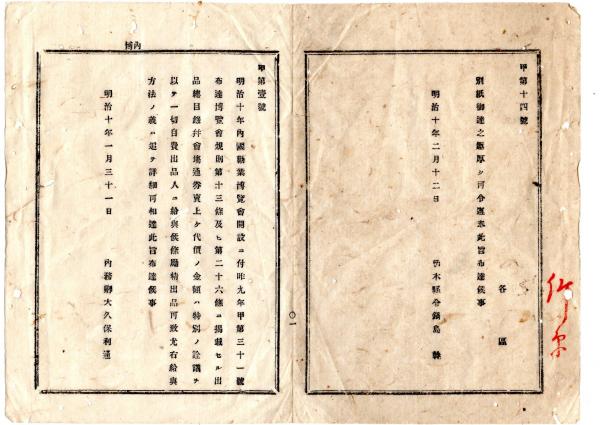 甲第十四號
各區
別紙御達之趣厚ク可令遵奉此旨布達候事
明治十年二月十二日
栃木縣令鍋島幹
甲第壹號
明治十年內國勸業博覽會開設ニ付昨九年甲第三十一號
布達博覽會規則第十三條及ヒ第二十六條ニ揭載セル出
品總目錄幷會塲通券賣上ケ代價ノ金額ハ特別ノ詮議ヲ
以テ一切自費出品人ニ給與候條勵精出品可致尤右給與
方法ノ義ハ追テ詳細可相達此旨布達候事
明治十年一月三十一日
內務卿大久保利通
〇一
內博